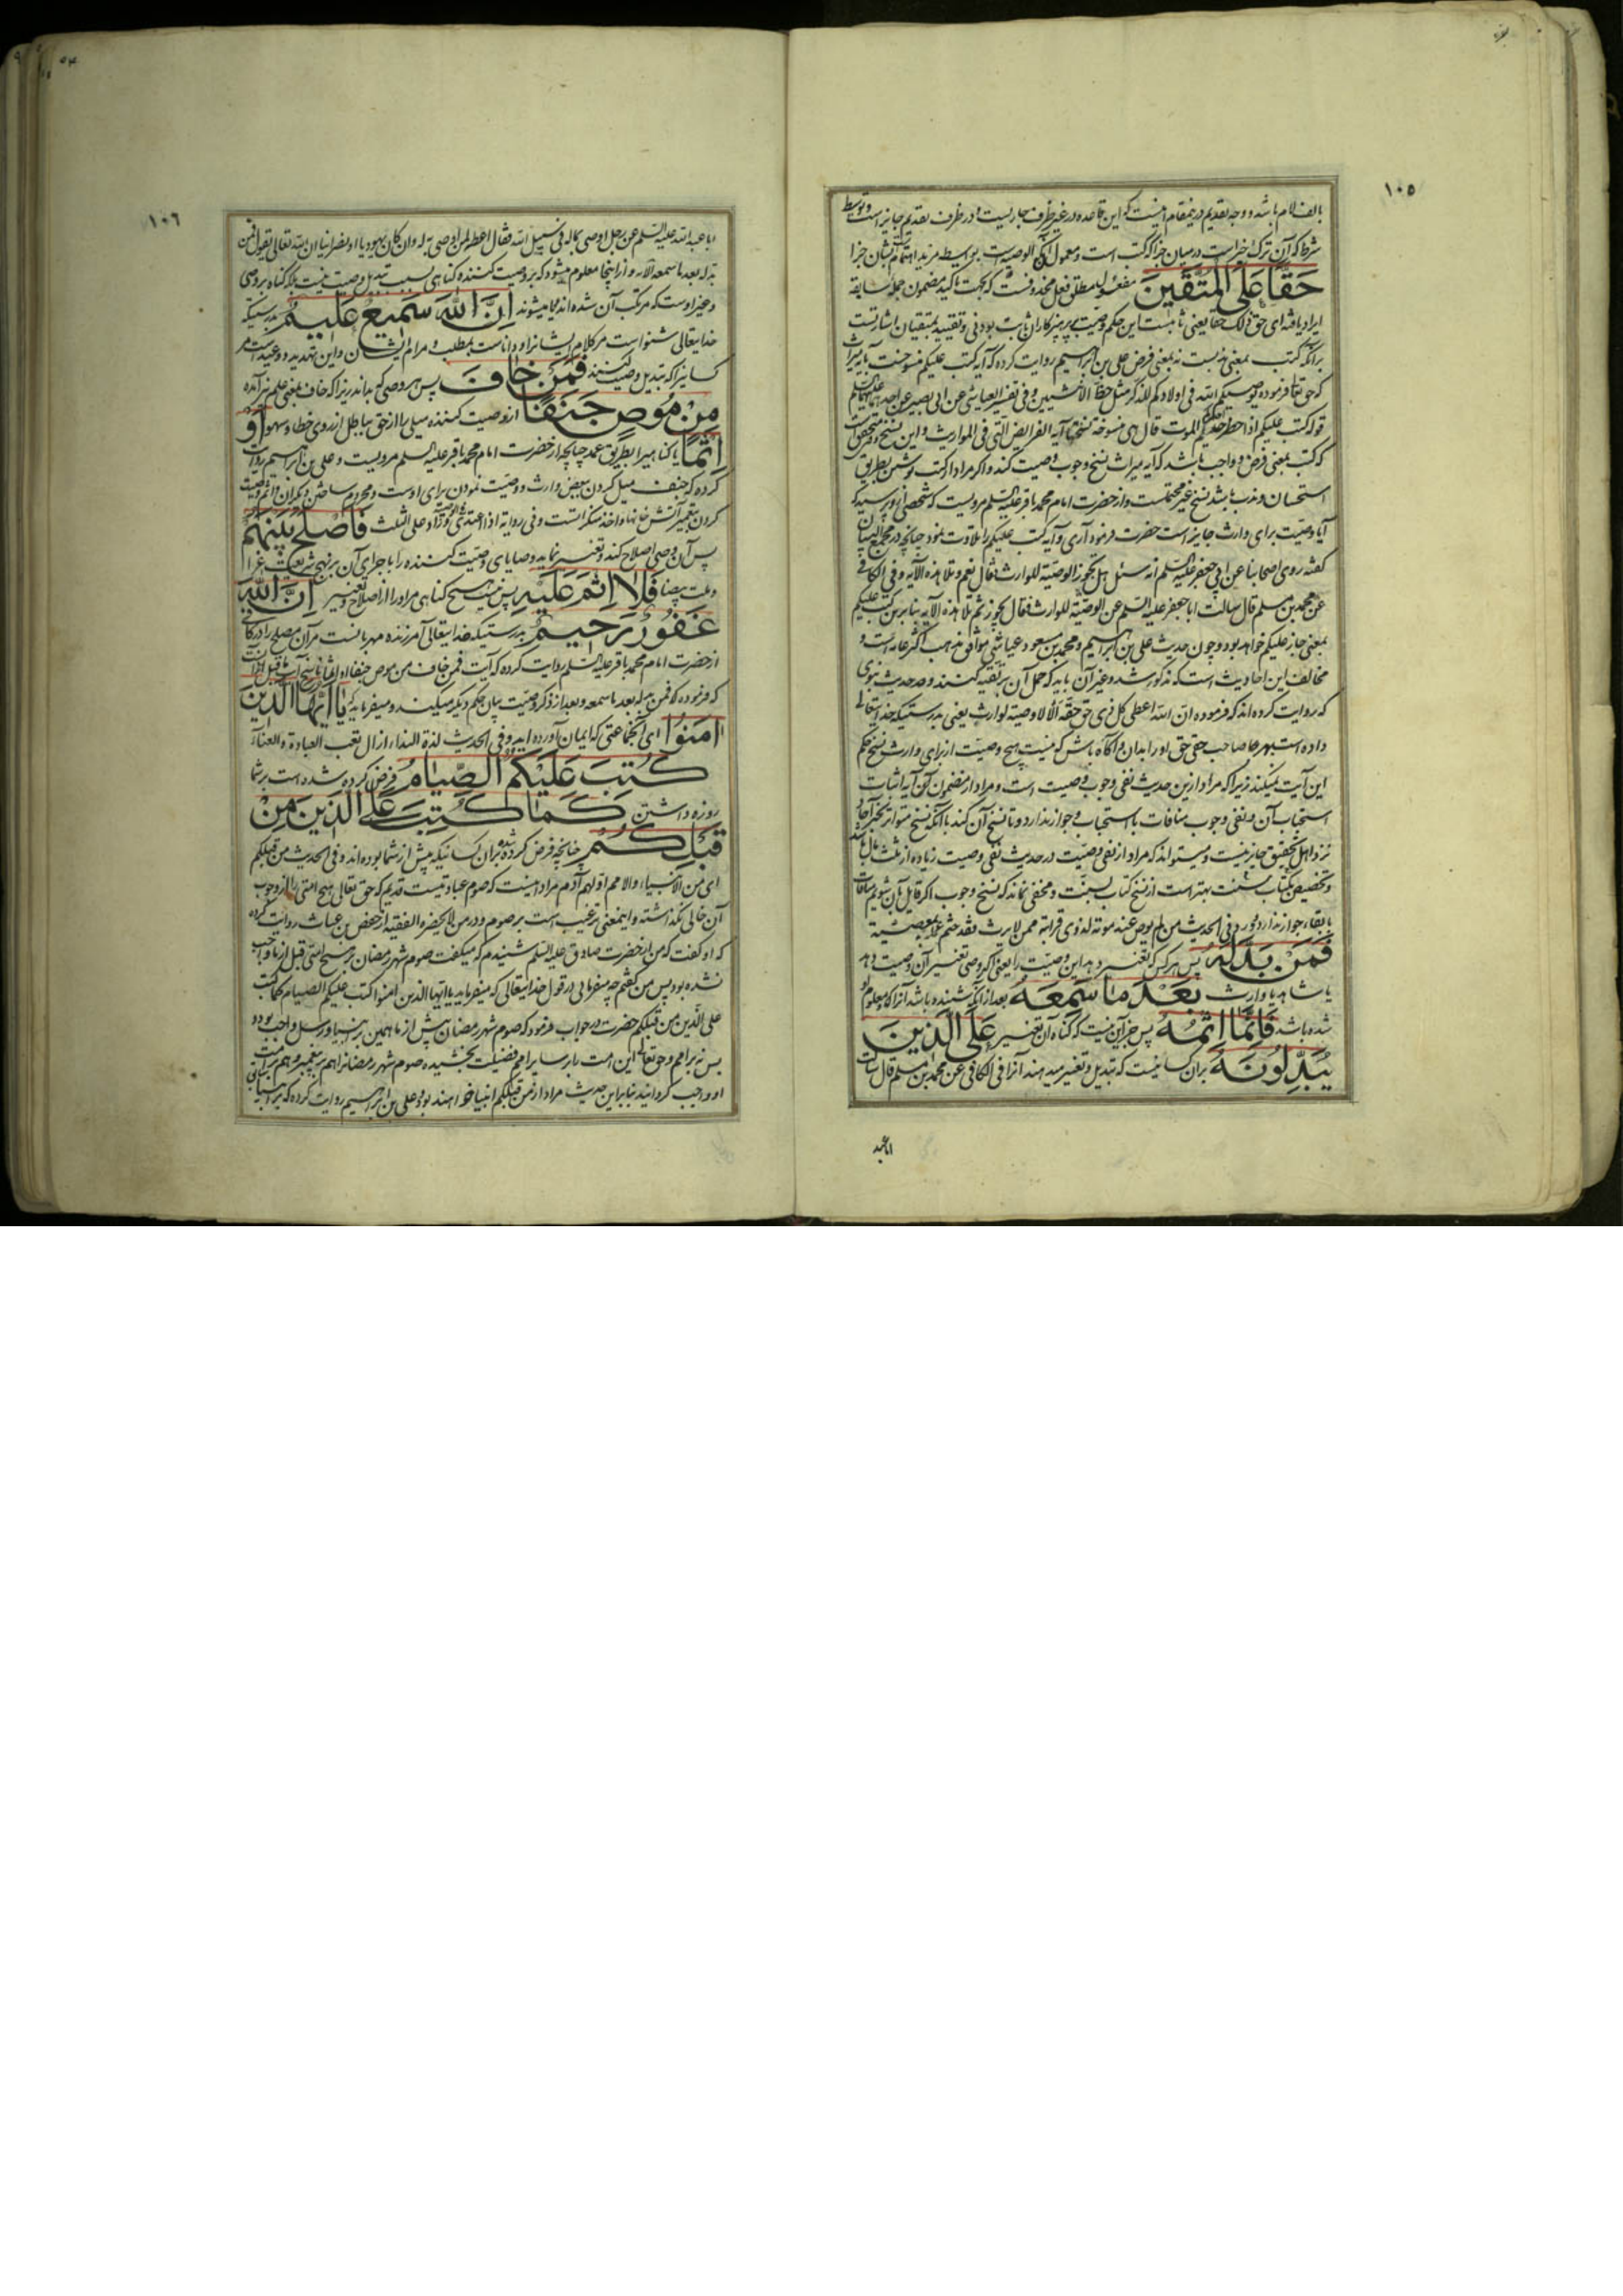 ١٠٥
بالف لام باشد و وجه تقدیم درینمقام اینست که این قاعده در غیر ظرف جاریست و در ظرف تقدیم جایز است و توسط
شرط که آن ترک خیراست در میان جزا که کتب است و معمول آنکه الوصیه است بواسطه مزید اهتمام بشان جزا
حَقًّا عَلَى المُتَّقينَ مفعول مطلق فعل محذوفست که بجهت تاکید مضمون جمله سابقه
ایراد یافته ای حق ذلک حقا یعنی ثابتست این حکم وصیت بر پرهیزکاران ثابت بودنی و تقیید بمتقیان اشارتست
برآنکه کتب بمعنی ندبست نه بمعنی فرض علی بن ابراهیم روایت کرده که آیه کتب علیکم منسوخست بآیه میراث
که حق تعا فرموده یوصیکم الله فی اولادکم للذکر مثل حظ الانثیین و فی تفسیر العیاشی عن ابی بصیر عن احدهما علیهما السلم
قوله کتب علیکم اذا حضر احدکم الموت قال هی منسوخة نسختها آیة الفرایض التی فی المواریث و این نسخ وقتی متحققست
که کتب بمعنی فرض و واجب باشد که آیه میراث نسخ وجوب وصیت کند و اگر مراد از کتب نوشتن بطریق
استحسان و ندب باشد نسخ غیر محتمست و از حضرت امام محمد باقر علیه السلم مرویست که شخصی از و پرسید که
آیا وصیت برای وارث جایز است حضرت فرمود آری و آیه کتب علیکم را تلاوت نمود چنانچه در مجمع البیان
گفته روی اصحابنا عن ابی جعفر علیه السلم انه سئل هل تجوز الوصیة للوارث فقال نعم و تلا هذه الآیه و فی الکافی
عن محمد بن مسلم قال سالت ابا جعفر علیه السلم عن الوصیة للوارث فقال تجوز ثم تلا هذه الآیه بنا برین کتب علیکم
بمعنی جاز علیکم خواهد بود و چون حدیث علی بن ابراهیم و محمد بن مسعود عیاشی موافق مذهب اکثر عامه است و
مخالف این احادیث است که مذکور شد و غیر آن باید که حمل آن بر تقیه کنند و حدیث نبوی
که روایت کرده اند که فرموده ان الله اعطی کل ذی حق حقه الا لا وصیة لوارث یعنی بدرستیکه خدایتعالی
داده است بهر صاحب حقی حق او را بدان و آگاه باش که نیست هیچ وصیت از برای وارث نسخ حکم
این آیت نمیکند زیرا که مراد ازین حدیث نفی وجوب وصیت است و مراد از مضمون آن آیه اثبات
استحباب آن و نفی وجوب منافات با استحباب و جواز ندارد و تا نسخ آن کند با آنکه نسخ متواتر بخبر آحاد
نزد اهل تحقیق جایز نیست و میتواند که مراد از نفی وصیت در حدیث نفی وصیت زیاده از ثلث مال باشد
و تخصیص کتاب بسنت بهتر است از نسخ کتاب بسنت و مخفی نماند که نسخ وجوب اگر قایل بآن شویم منافات
با بقاء جواز ندارد و فی الحدیث من لم یوص عند موته لذوی قرابته ممن لا یرث فقد ختم عمله بمعصیة
فَمَنْ بَدَّلَهُ پس هر کس که تغییر دهد این وصیت را یعنی اگر وصی تغییر آن وصیت دهد
یا شاهد یا وارث بَعْدَ ما سَمِعَهُ بعد از آنکه شنیده باشد آنرا که معلوم او
شده باشد فَاِنَّما اِثْمُهُ پس جز این نیست که گناه آن تغییر عَلَى الَّذينَ
يُبَدِّلُونَهُ بر آن کسانیست که تبدیل و تغییر میدهند آنرا فی الکافی عن محمد بن مسلم قال سالت
ابا عبد
١٠٦
ابا عبد الله علیه السلم عن رجل اوصی بماله فی سبیل الله فقال اعطه لمن اوصی به له و ان کان یهودیا او نصرانیا ان الله تعالی یقول فمن
بدله بعد ما سمعه الآیه و از اینجا معلوم میشود که بر وصیت کننده گناهی بسبب تبدیل وصیت نیست بلکه گناه بر وصی
و غیر اوست که مرتکب آن شده اند یا میشوند اِنَّ اللّٰهَ سَميعٌ عَليمٌ بدرستیکه
خدایتعالی شنواست مر کلام ایشانرا و داناست بمطلب و مرام ایشان و این تهدید و وعید است مر
کسانیرا که تبدیل وصیت کنند فَمَنْ خافَ پس هر وصی که بداند زیرا که خاف بمعنی علم نیز آمده
مِنْ مُوصٍ جَنَفًا از وصیت کننده میلی را از حق بباطل از روی خطا و سهو اَوْ
اِثْمًا یا گناهیرا بطریق عمد چنانچه از حضرت امام محمد باقر علیه السلم مرویست و علی بن ابراهیم روایت
کرده که جنف میل کردن ببعض وارث و وصیت نمودن برای اوست و محروم ساختن دیگران و اثم وصیت
کردن بتعمیر آتش خانها و اخذ مسکراتست و فی روایة اذا اعتدی فی الوصیة و زاد علی الثلث فَاَصْلَحَ بَيْنَهُمْ
پس آن وصی اصلاح کند و تغییر نماید وصایای وصیت کننده را با جرای آن بر نهج شریعت غرا
و ملت بیضا فَلا اِثْمَ عَلَيْهِ پس نیست هیچ گناهی مر او را از اصلاح و تغییر اِنَّ اللّٰهَ
غَفُورٌ رَحيمٌ بدرستیکه خدایتعالی آمرزنده مهربانست مر آن مصلح را در کافی
از حضرت امام محمد باقر علیه السلم روایت کرده که آیت فمن خاف من موص جنفا او اثما ناسخ آیت ما قبل آنست
که فرموده که فمن بدله بعد ما سمعه و بعد از ذکر وصیت بیان حکم دیگر میکند و میفرماید که يا اَيُّهَا الَّذينَ
اٰمَنُوا ای آنجماعتی که ایمان آورده اید و فی الحدیث لذة النداء ازال تعب العبادة و العناء
كُتِبَ عَلَيْكُمُ الصِّيامُ فرض کرده شده است بر شما
روزه داشتن كَما كُتِبَ عَلَى الَّذينَ مِنْ
قَبْلِكُمْ چنانچه فرض کرده شده بر آن کسانیکه پیش از شما بوده اند و فی الحدیث من قبلکم
ای من الانبیاء و الامم اولهم آدم مراد اینست که صوم عبادتیست قدیم که حق تعالی هیچ امتی را از وجوب
آن خالی نگذاشته و اینمعنی ترغیب است بر صوم و در من لا یحضره الفقیه از حفص بن غیاث روایت کرده
که او گفت که من از حضرت صادق علیه السلم شنیدم که میگفت صوم شهر رمضان بر هیچ امتی قبل از ما واجب
نشده بود پس من گفتم چه میفرمایی در قول خدایتعالی که میفرماید یا ایها الذین امنوا کتب علیکم الصیام کما کتب
علی الذین من قبلکم حضرت در جواب فرمود که صوم شهر رمضان پیش از ما همین بر انبیا و رسل واجب بوده
بس نه بر امم و حق تعالی این امت را بر سایر امم فضیلت بخشیده و صوم شهر رمضانرا هم بر پیغمبر و هم بر امت
او واجب گردانید بنابر این حدیث مراد از من قبلکم انبیا خواهند بود و علی بن ابراهیم روایت کرده که